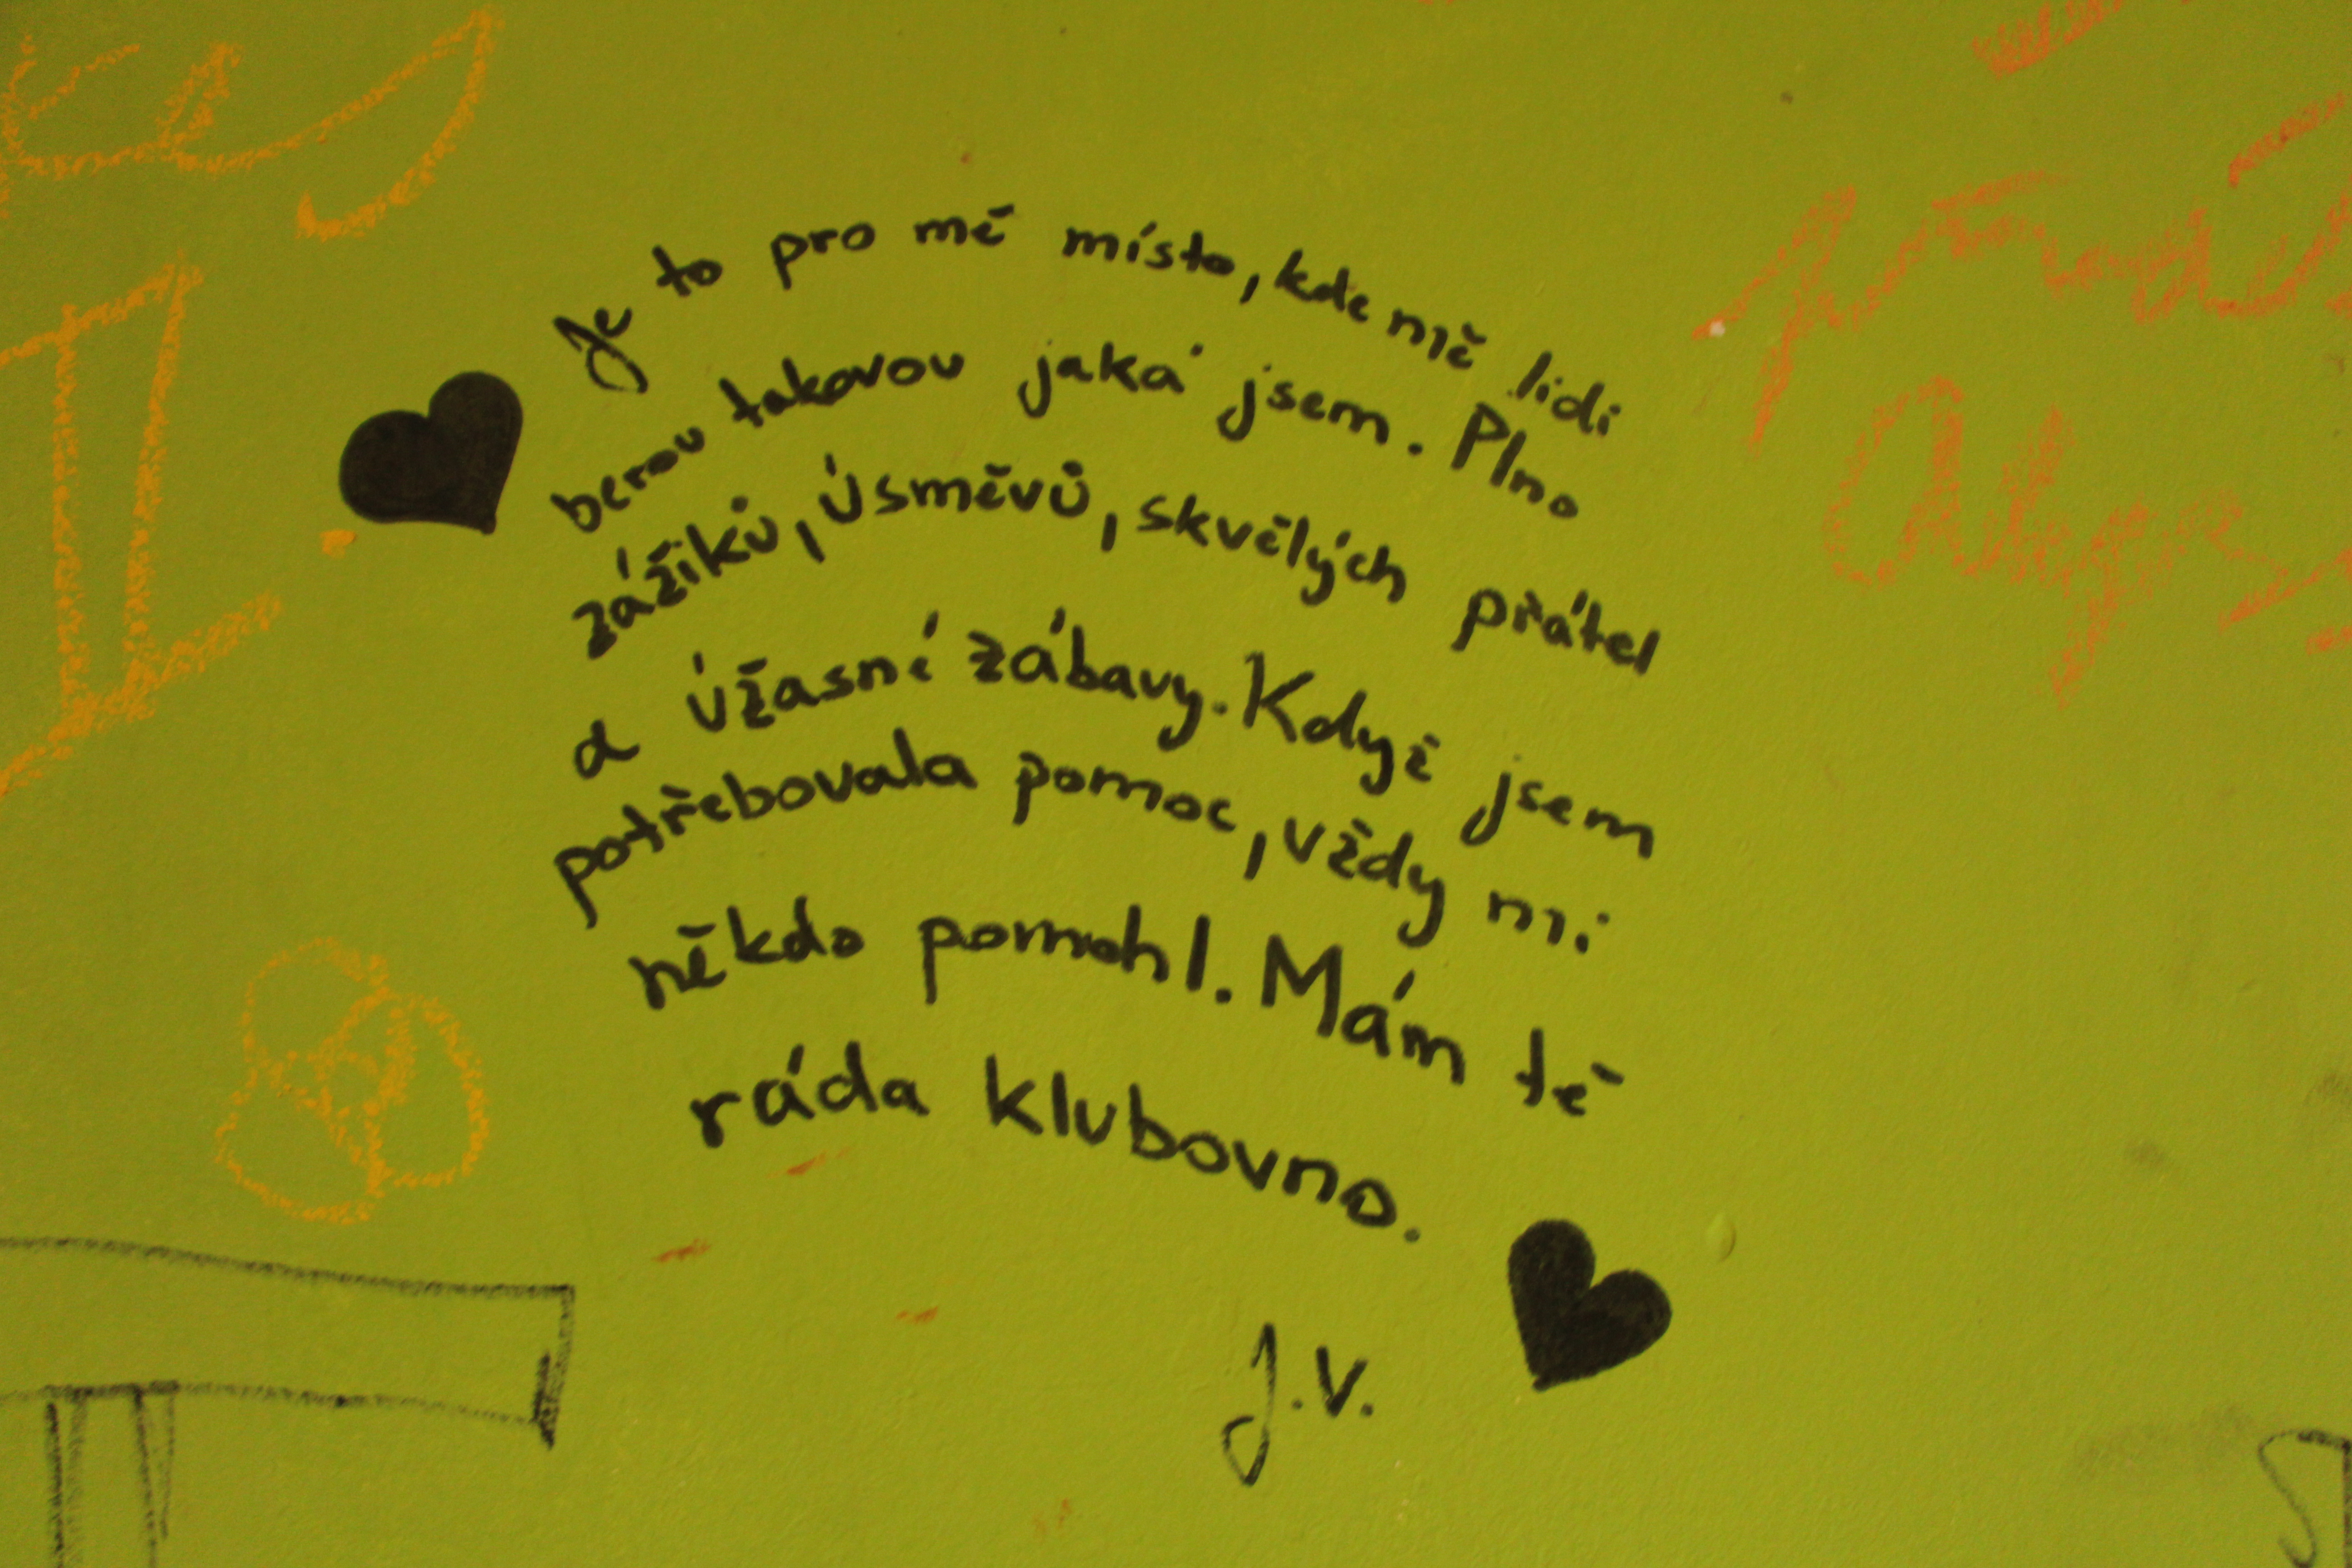 Je to pro mě místo, kde mě lidi
berou takovou jaká jsem. Plno
zážiků, úsměvů, skvělých přátel
a úžasné zábavy. Když jsem
potřebovala pomoc, vždy mi
někdo pomohl. Mám tě
ráda klubovno.
J.V.